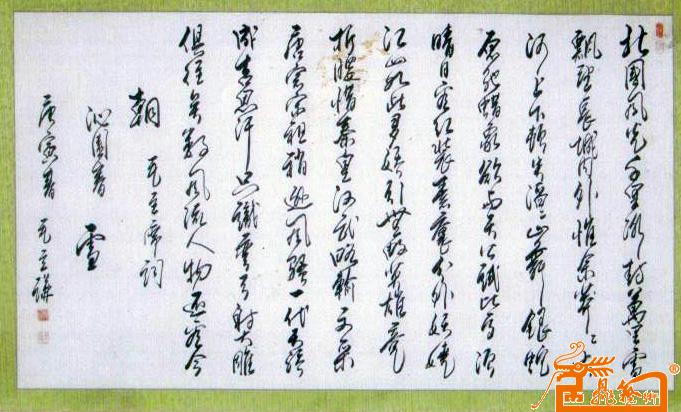 北國风光千里冰封萬里雪
飘望长城内外惟余莽々大
河上下顿失滔々山舞银蛇
原驰蜡象欲与天公试比高须
晴日看红装素裹分外妖娆
江山如此多娇引无数英雄竞
折腰惜秦皇汉武略输文采
唐宗宋祖稍逊风骚一代天骄
成吉思汗只識弯弓射大雕
俱往矣数风流人物还看今
朝 毛主席词
沁園春 雪
庚寅春